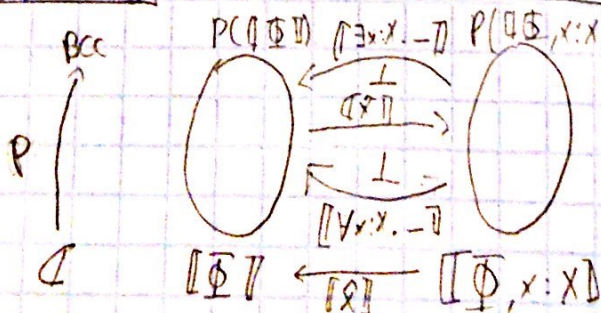 BCC P(⟦Φ⟧) ⟦∃x:X. –⟧ P(⟦Φ, x:X
⊥
⟦x̂⟧
P
⊥
⟦∀x:X. –⟧
ℂ ⟦Φ⟧ ⟦x̂⟧ ⟦Φ, x:X⟧